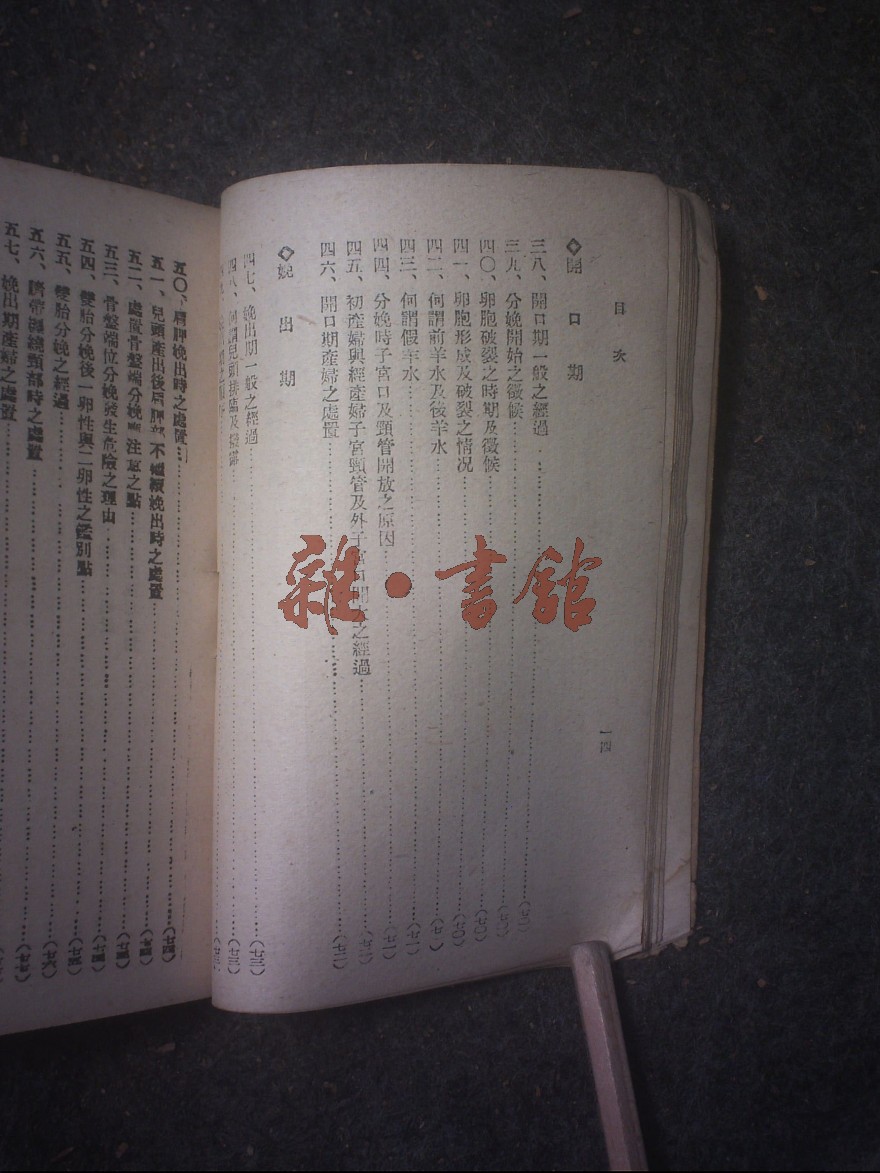 目次
一四
◇開口期
三八、開口期一般之經過
三九、分娩開始之徵候
四〇、卵胞破裂之時期及徵候
四一、卵胞形成及破裂之情況
四二、何謂前羊水及後羊水
四三、何謂假羊水
四四、分娩時子宮口及頸管開放之原因
四五、初產婦與經產婦子宮頸管及外子宮口開大之經過
四六、開口期產婦之處置
◇娩出期
四七、娩出期一般之經過……(七三)
四八、何謂兒頭排臨及
五〇、肩胛娩出時之處置
五一、兒頭產出後肩胛部不繼續娩出時之處置
五二、處置骨盤端分娩注意之點
五三、骨盤端位分娩發生危險之理由
五四、雙胎分娩後一卵性與二卵性之鑑別點
五五、雙胎分娩之經過
五六、臍帶纏繞頸部時之處置
五七、娩出期產婦之處置
雜·書館